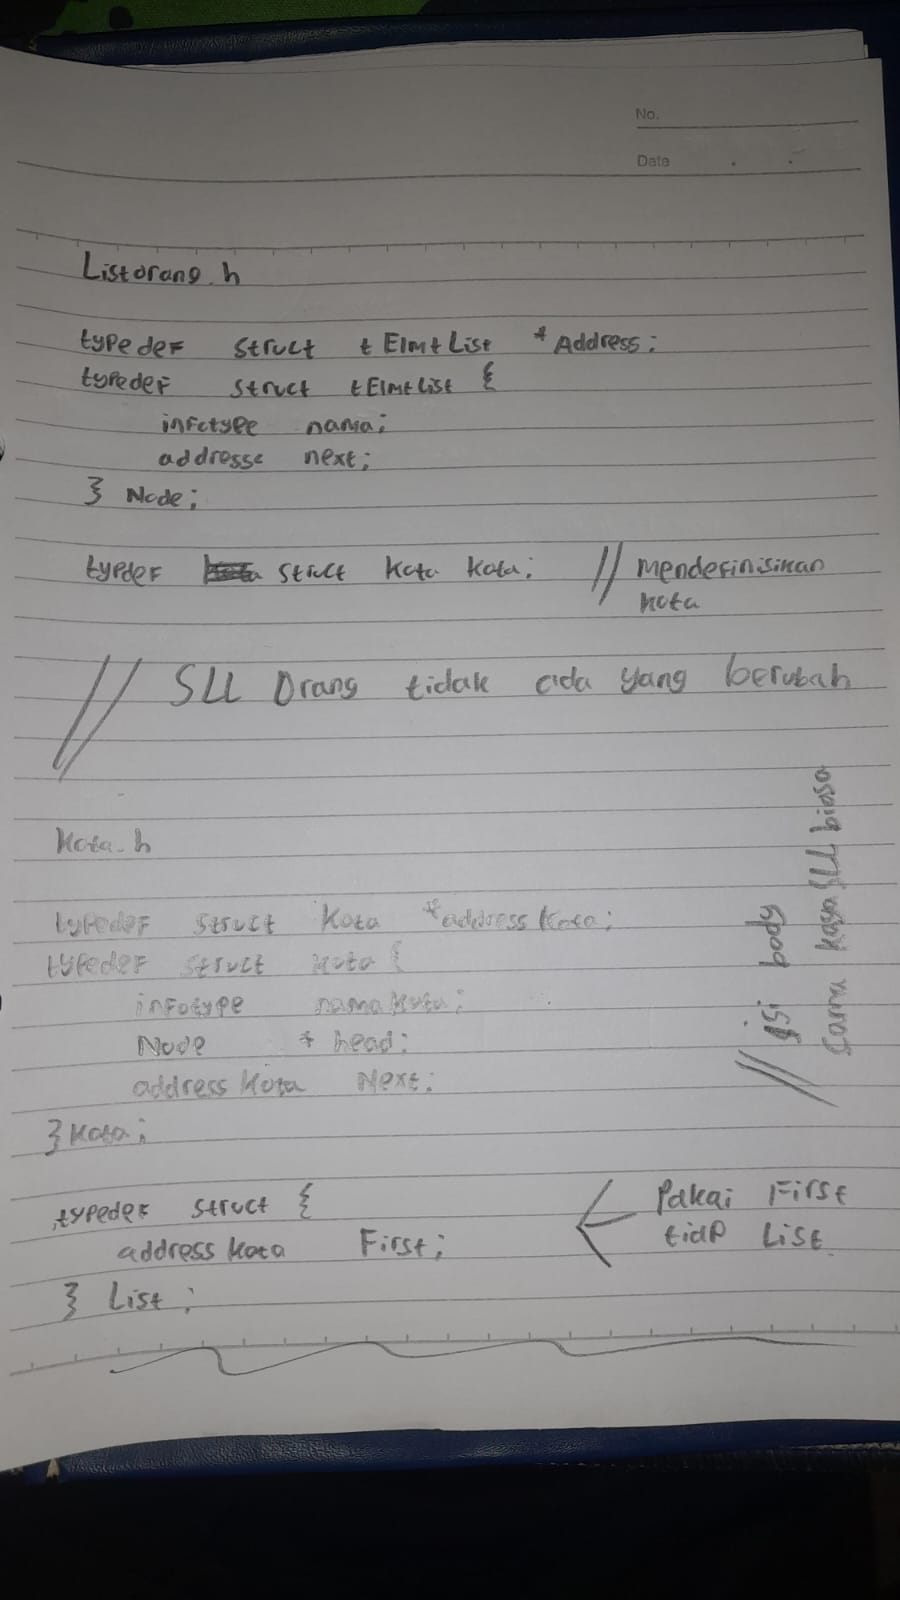 No.
Date
Listorang.h
typedef struct tElmtList *Address;
typedef struct tElmtList {
infotype nama;
addresse next;
} Node;
typdef struct Kota Kota; // Mendefinisikan
kota
// SLL Orang tidak ada yang berubah
Kota.h
typedef struct Kota *address Kota;
typedef struct kota {
infotype nama Kota;
Node * head;
address Kota Next;
} Kota;
// isi body
sama kaya SLL biasa
typedef struct {
address Kota First;
} List;
Pakai First
tiap List